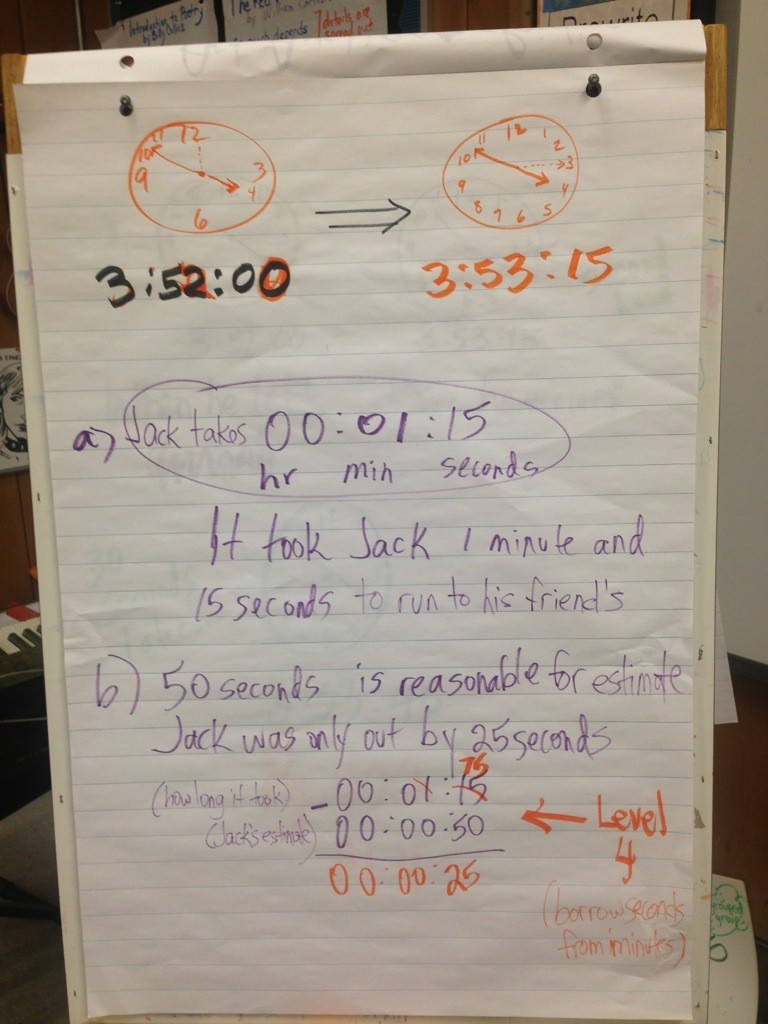 Introduction to Poetry
by Billy Collins
The Red
by William
depends
7 details are
Prewrite
11 12
10
9 3
4
6
11 12 1
10 2
9 3
8 4
7 6 5
3:52:00
3:53:15
a) Jack takes 00:01:15
hr min seconds
It took Jack 1 minute and
15 seconds to run to his friend's
b) 50 seconds is reasonable for estimate
Jack was only out by 25 seconds
75
(how long it took) - 00:01:15
(Jack's estimate) 00:00:50
00:00:25
Level
4
(borrow seconds
from minutes)